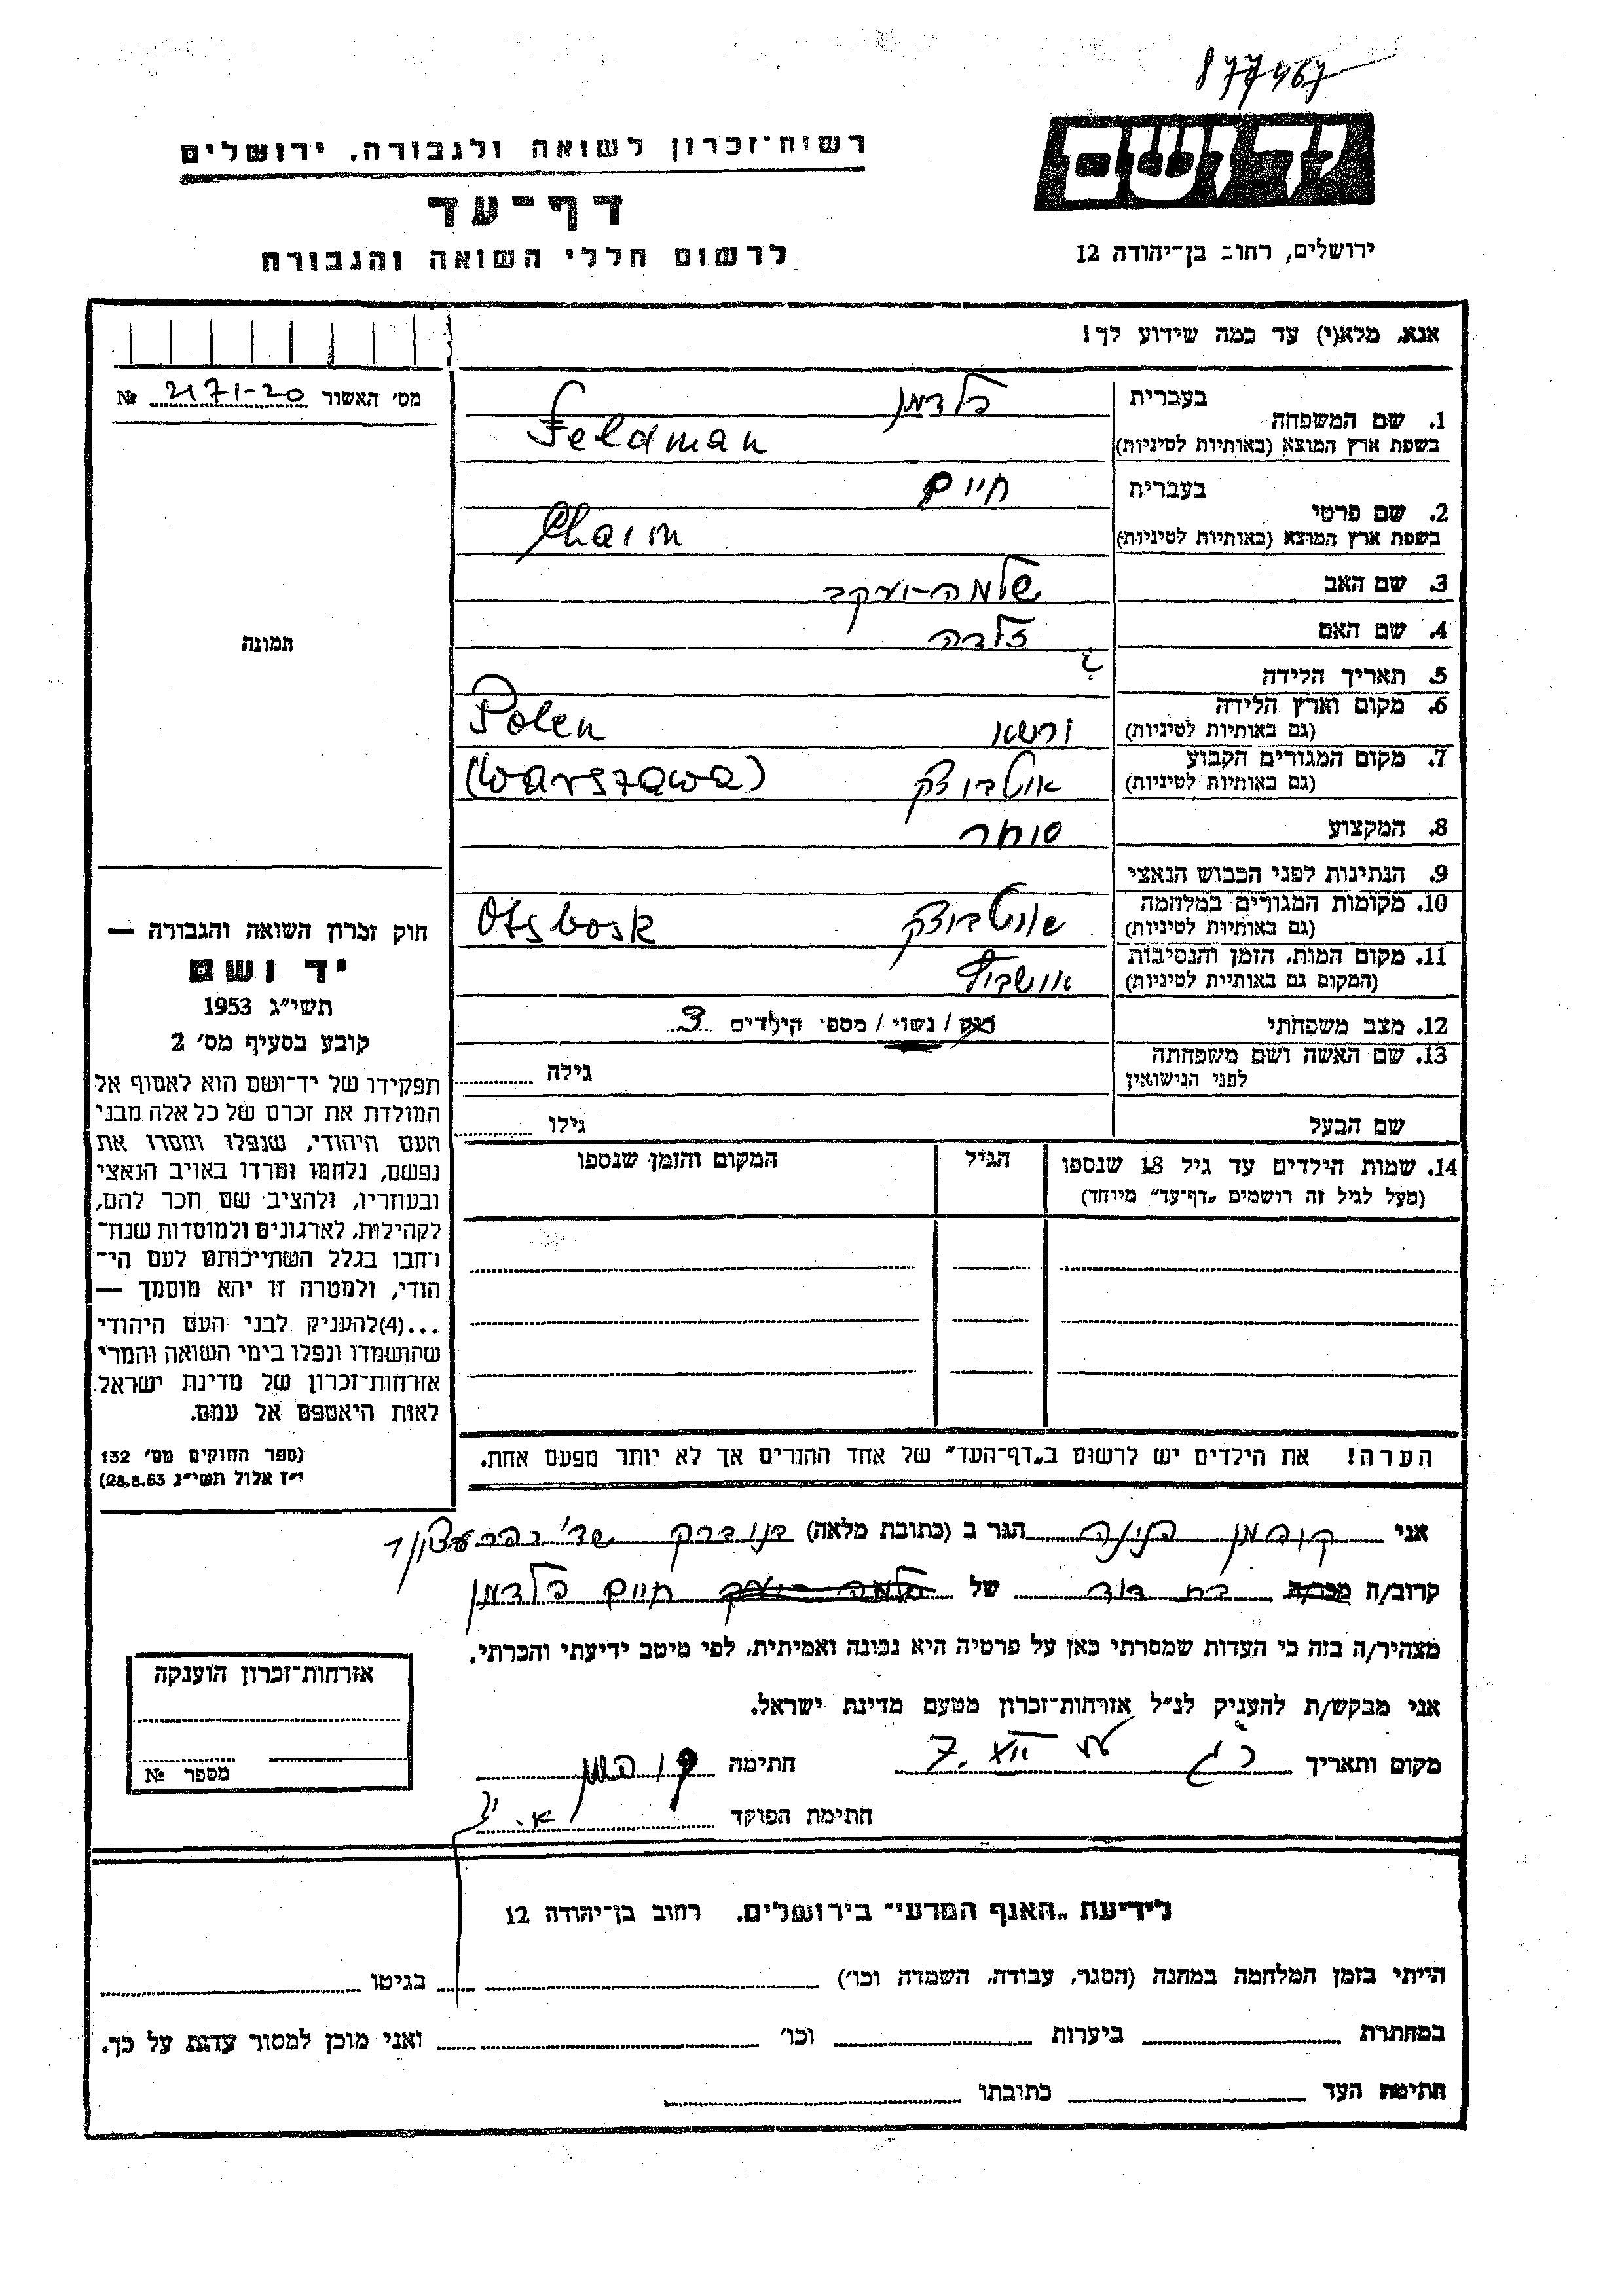 877467
יד ושם
רשות־זכרון לשואה ולגבורה, ירושלים
דף־עד
לרשום חללי השואה והגבורה
ירושלים, רחוב בן־יהודה 12
אנא, מלא(י) עד כמה שידוע לך!
מס׳ האשור 2171-20 №
בעברית פלדמן
1. שם המשפחה
בשפת ארץ המוצא (באותיות לטיניות) Feldman
בעברית חיים
2. שם פרטי
בשפת ארץ המוצא (באותיות לטיניות) Chaim
3. שם האב שלמה-יעקב
4. שם האם זלדה
5. תאריך הלידה ?
6. מקום וארץ הלידה
(גם באותיות לטיניות) ורשא Polen
7. מקום המגורים הקבוע
(גם באותיות לטיניות) אוטבוצק (Warszawa)
8. המקצוע סוחר
9. הנתינות לפני הכבוש הנאצי
10. מקומות המגורים במלחמה
(גם באותיות לטיניות) אוטבוצק Otsbosk
11. מקום המות, הזמן והנסיבות
(המקום גם באותיית לטיניות) אושביץ
12. מצב משפחתי רווק / נשוי / מספר הילדים 3
13. שם האשה ושם משפחתה
לפני הנישואין גילה
שם הבעל גילו
14. שמות הילדים עד גיל 18 שנספו הגיל המקום והזמן שנספו
(מעל לגיל זה רושמים „דף־עד” מיוחד)
הערה! את הילדים יש לרשום ב„דף־העד” של אחד ההורים אך לא יותר מפעם אחת.
תמונה
חוק זכרון השואה והגבורה —
יד ושם
תשי״ג 1953
קובע בסעיף מס׳ 2
תפקידו של יד־ושם הוא לאסוף אל
המולדת את זכרם של כל אלה מבני
העם היהודי, שנפלו ומסרו את
נפשם, נלחמו ומרדו באויב הנאצי
ובעוזריו, ולהציב שם וזכר להם,
לקהילות, לארגונים ולמוסדות שנח־
רחבו בגלל השתייכותם לעם הי־
הודי, ולמטרה זו יהא מוסמך —
...(4)להעניק לבני העם היהודי
שהושמדו ונפלו בימי השואה והמרי
אזרחות־זכרון של מדינת ישראל
לאות היאספם אל עמם.
(ספר החוקים מס׳ 132
י״ז אלול תשי״ג 28.8.53)
אני קופמן הגר ב (כתובת מלאה)
קרוב/ה מכר/ה בת דוד של חיים פלדמן
מצהיר/ה בזה כי העדות שמסרתי כאן על פרטיה היא נכונה ואמיתית, לפי מיטב ידיעתי והכרתי.
אני מבקש/ת להעניק לנ״ל אזרחות־זכרון מטעם מדינת ישראל.
מקום ותאריך 7. XII חתימה קופמן
חתימת הפוקד
אזרחות־זכרון הוענקה
מספר №
לידיעת „האגף המדעי” בירושלים, רחוב בן־יהודה 12
הייתי בזמן המלחמה במחנה (הסגר, עבודה, השמדה וכו׳) בגיטו
במחתרת ביערות וכו׳ ואני מוכן למסור עדות על כך.
חתימת העד כתובתו